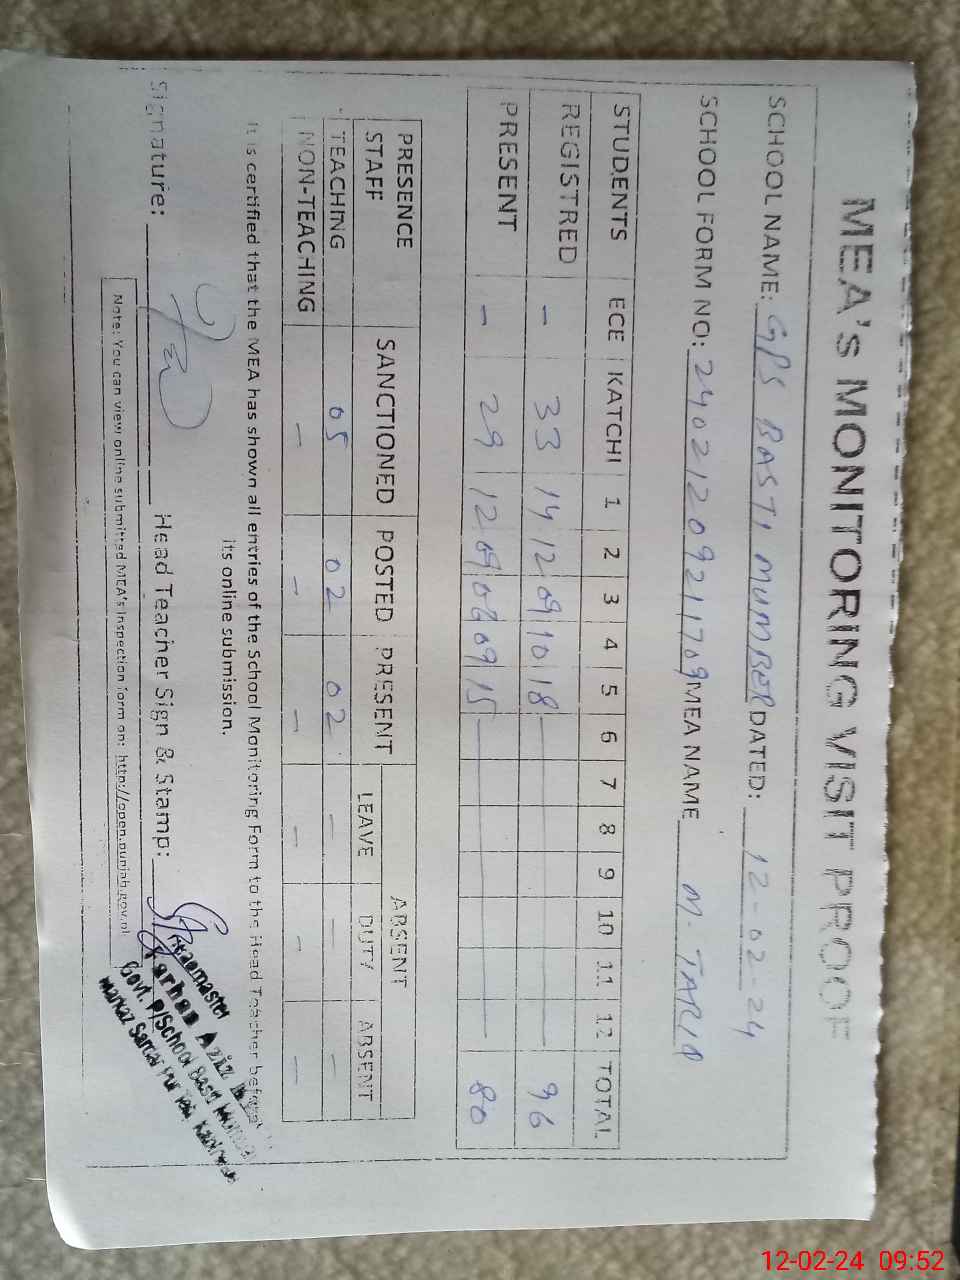 MEA's MONITORING VISIT PROOF
SCHOOL NAME: GPS BASTI MUMBER DATED: 12-02-24
SCHOOL FORM NO: 24021209211709 MEA NAME M. TARIQ
STUDENTS ECE KATCHI 1 2 3 4 5 6 7 8 9 10 11 12 TOTAL
REGISTRED - 33 14 12 09 10 18 96
PRESENT - 29 12 09 06 09 15 80
PRESENCE STAFF SANCTIONED POSTED PRESENT ABSENT
LEAVE DUTY ABSENT
TEACHING 05 02 02 - - -
NON-TEACHING - - - - - -
It is certified that the MEA has shown all entries of the School Monitoring Form to the Head Teacher before
its online submission.
Signature: Head Teacher Sign & Stamp:
Headmaster
Farhan Aziz
Govt. P/School Basti
Markaz
Note: You can view online submitted MEA's Inspection form on: http://open.punjab.gov.
12-02-24 09:52